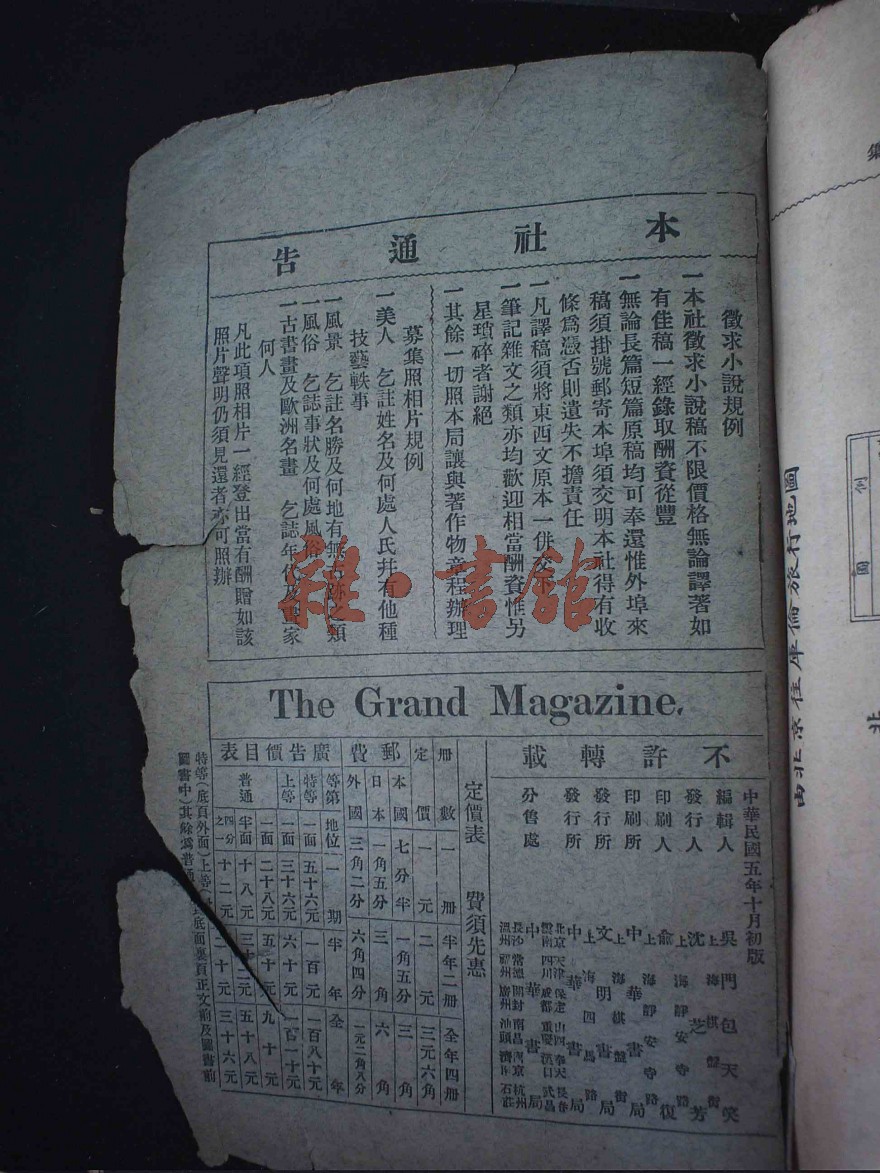 本社通告
徵求小說規例
一本社徵求小說稿不限價格無論譯著如
有佳稿一經錄取酬資從豐
一無論長篇短篇原稿均可奉還惟外埠來
稿須掛號郵寄本埠須交明本社得有收
條爲憑否則遺失不擔責任
一凡譯稿須將東西文原本一併交下
一筆記雜文之類亦均歡迎相當酬資惟另
星瑣碎者謝絕
一其餘一切照本局讓與著作物章程辦理
募集照相片規例
一美人 乞註姓名及何處人氏幷有他種
技藝軼事
一風景 乞註名勝及何地有無古跡之類
一風俗 乞誌事狀及何處風俗
一古書畫及歐洲名畫 乞誌年代及畫家
何人
凡此項照相片一經登出當有酬贈如該
照片聲明仍須見還者亦可照辦
雜·書館
The Grand Magazine.
不許轉載
中華民國五年十月初版
編輯人 吳門包天笑
上海棋盤街
發行人 沈芝芳
上海靜安寺路
印刷人 俞復
上海靜安寺路
印刷所 中華書局
上海棋盤街
發行所 文明書局
上海四馬路
發行所 中華書局
北京 天津 保定 山西 奉天 長春
雲南 四川 成都 重慶 漢口 武昌
分售處 中華書局
長沙 常德 開封 南昌 南京 杭州
溫州 福州 廣州 汕頭 濟南 石莊
定價表 費須先惠
冊數 一冊 半年二冊 全年四冊
定價 一元 二元 三元六角
郵費
本國 七分半 一角五分 三角
日本 一角五分 三角 六角
外國 三角二分 六角四分 一元二角八分
廣告價目表
等第 地位 一期 半年 全年
特等 一面 五十六元 一百元 一百八十元
上等 一面 三十六元 六十元 一百一十元
普通 一面 二十八元 五十元 九十元
半面 十八元 三十二元 五十八元
四分之一 十二元 二十元 三十六元
特等(底頁外面)上等(底面裏頁正文前及圖書前
圖書中)其餘爲普通
例
圖